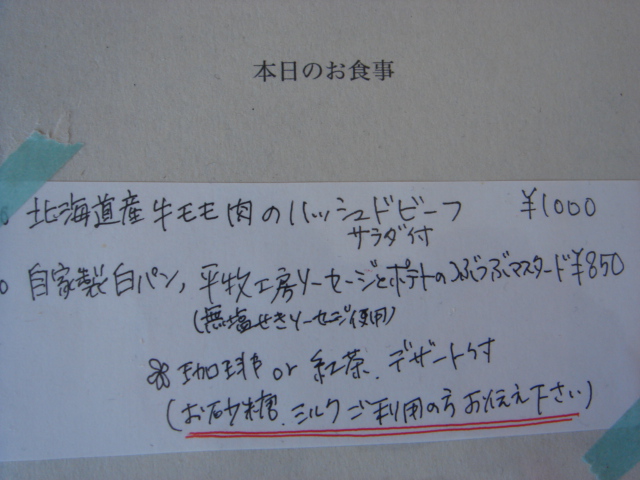 本日のお食事
北海道産牛モモ肉のハッシュドビーフ ¥1000
サラダ付
自家製白パン,平牧工房ソーセージとポテトのつぶつぶマスタード¥850
(無塩せきソーセージ使用)
珈琲 or 紅茶、デザート付
(お砂糖、ミルクご利用の方お伝え下さい)